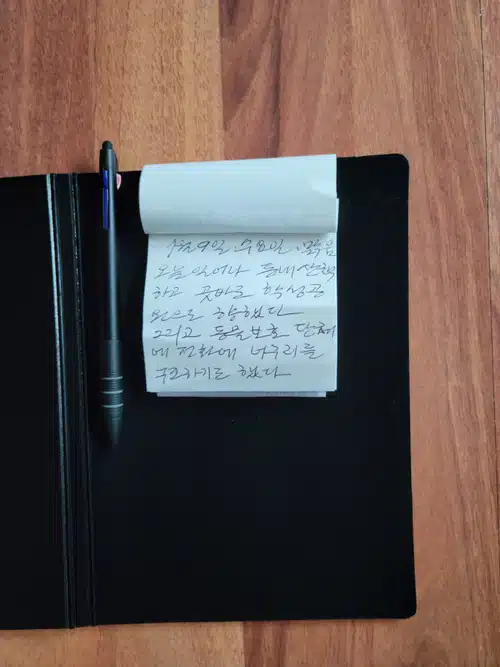 1월 9일 수요일. 맑음
오늘 일어나 동내 산책
하고 곳바로 학성공
원으로 향했다
그리고 동물보호 단체
에 전화해 너구리를
구조하기로 했다